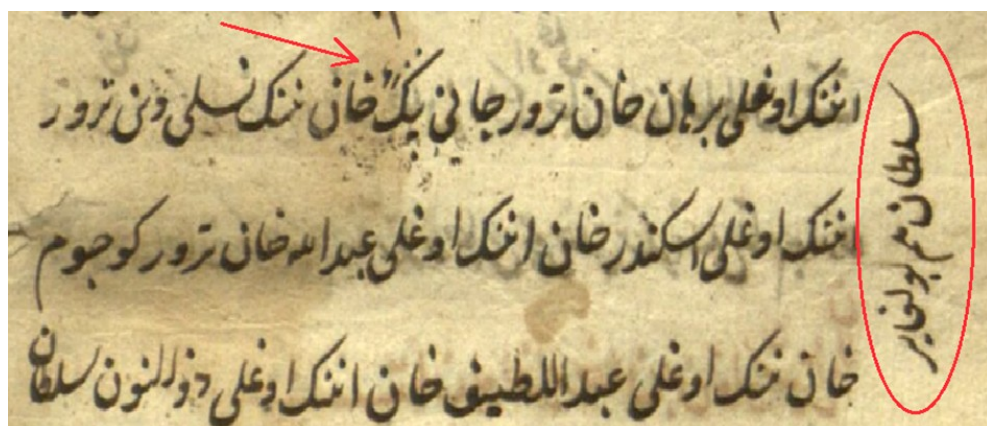 اننک اوغلی برهان خان ترور جانی بیک خان ننک نسلی دین ترور
اننک اوغلی اسکندر خان اننک اوغلی عبدالله خان ترور کوجوم
خان ننک اوغلی عبداللطیف خان اننک اوغلی ذوالنون سلطان
سلطان